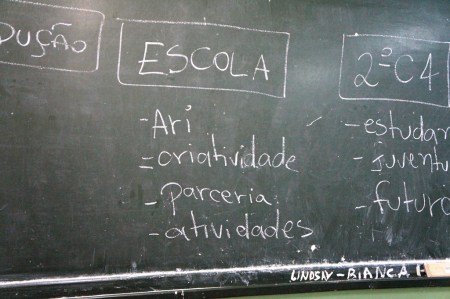 DUÇÃO
ESCOLA
- Ari
- criatividade
- parceria
- atividades
2º C4
- estudar
- juventu
- futuro
LINDSAY - BIANCA